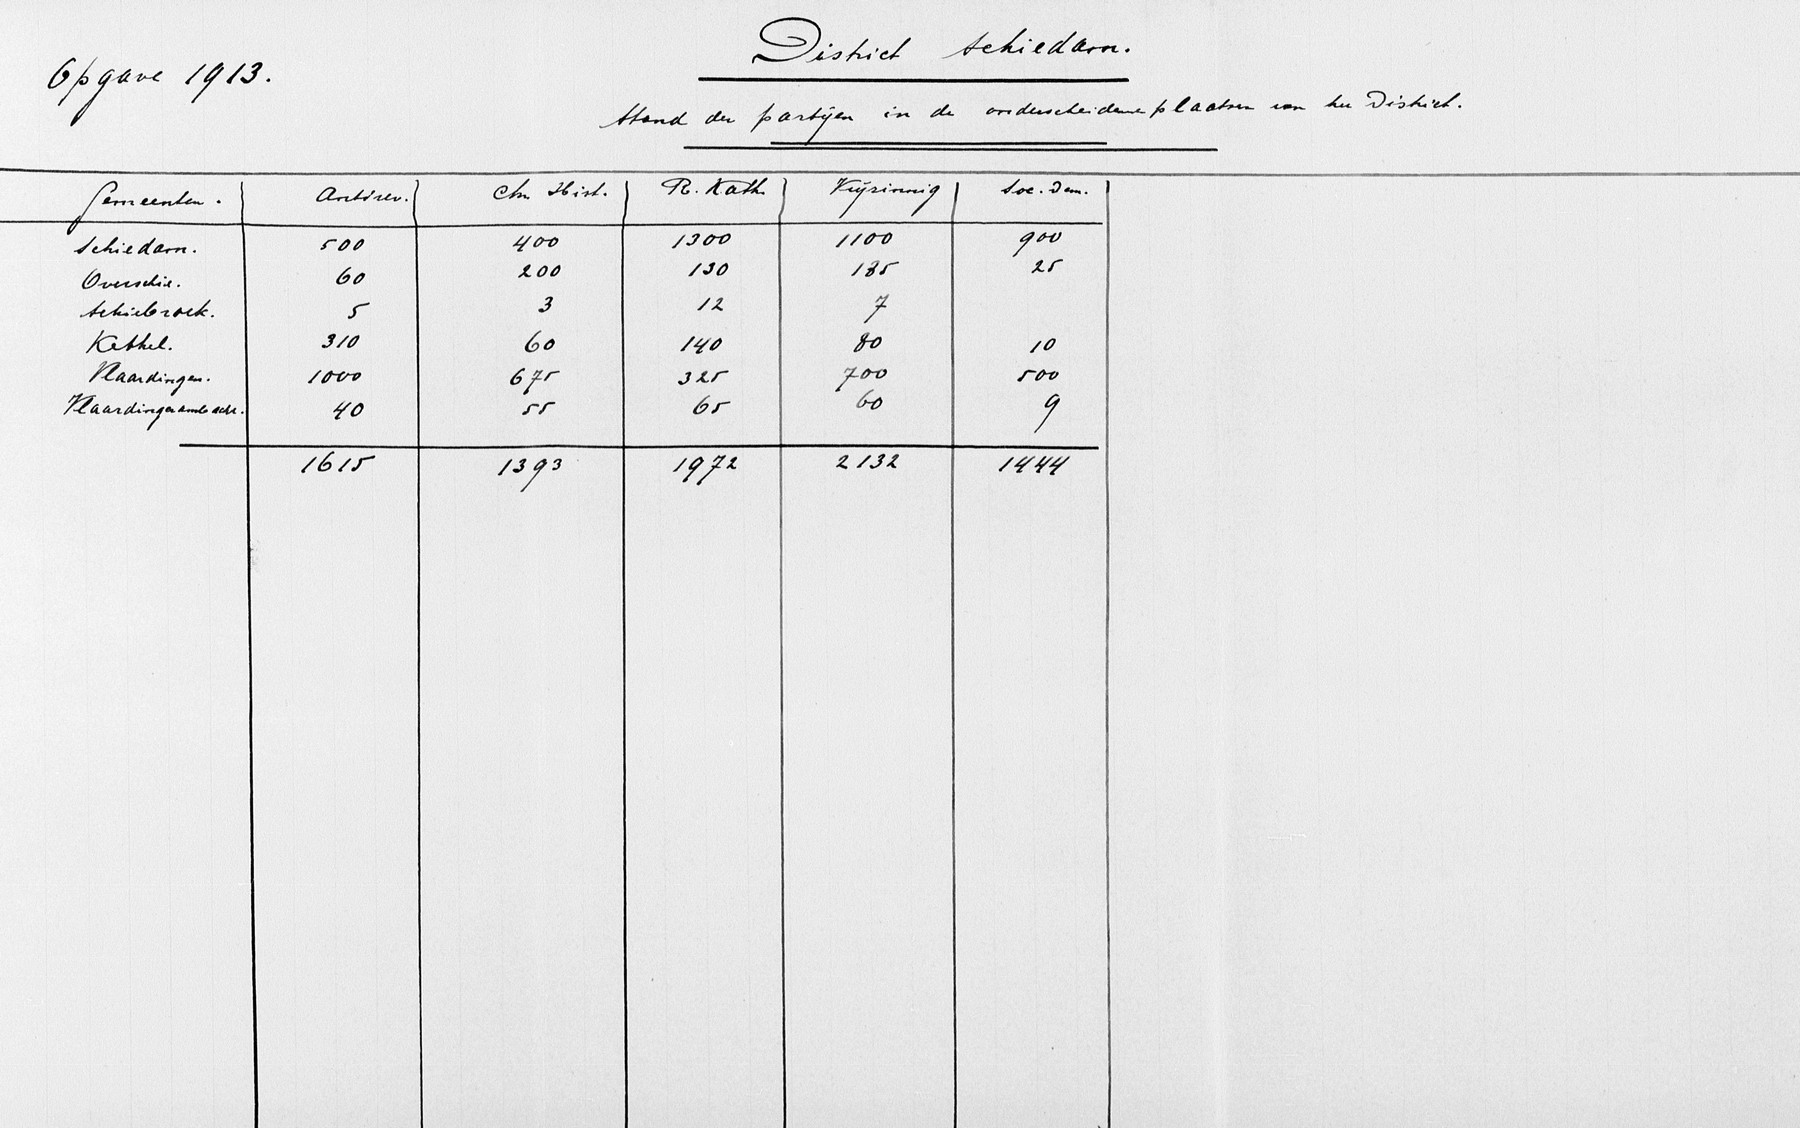 Opgave 1913.
District Schiedam.
Stand der partijen in de onderscheidene plaatsen van het District.
Gemeenten. Antirev. Chr. Hist. R. Kath. Vrijzinnig Soc. Dem.
Schiedam. 500 400 1300 1100 900
Overschie. 60 200 130 185 25
Schiebroek. 5 3 12 7
Kethel. 310 60 140 80 10
Vlaardingen. 1000 675 325 700 500
Vlaardingerambacht. 40 55 65 60 9
1615 1393 1972 2132 1444